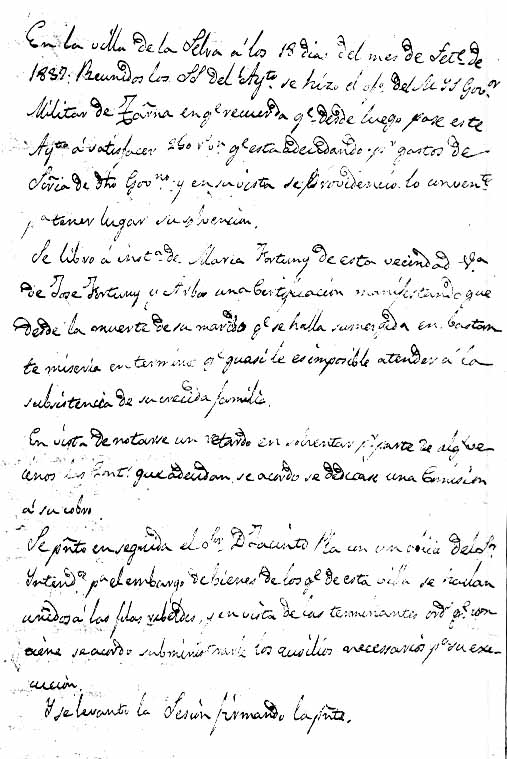 En la villa de la Selva á los 18 dias del mes de Set.e de
1837. Reunidos los S.S. del Ayto. se hizo el ofo. del M Y S Gov.or
Militar de Tarña en q.e recuerda q.e desde luego pase este
Ayto. á satisfacer 260 r.s v.n q.e esta adeudando p.r gastos de
Sria de dho Gov.no y en su vista se providenció lo conven.te
p.a tener lugar su solvencion.
Se libro á inst.a de Maria Fortuny de esta vecindad V.da
de Jose Fortuny y Arbos una Certificacion manifestando que
desde la muerte de su marido q.e se halla sumergida en bastan
te miseria en termino q.e quasi le es imposible atender á la
subsistencia de su crecida familia.
En vista de notarse un retardo en solventar p.r parte de alg.s ve-
cinos las Cont.s que adeudan, se acordo se dedicase una Comision
á su cobro
Se pñto en seguida el S.or D.n Jacinto Pla con un oficio del S.r
Yntend.te p.a el embargo de bienes de los q.e de esta villa se hallan
unidos á las filas rebeldes, y en vista de las terminantes ord.s q.e con
tiene se acordo subministrarle los auxilios necessarios p.a su exe-
cucion.
Y se levanto la Sesion firmando la pñte.